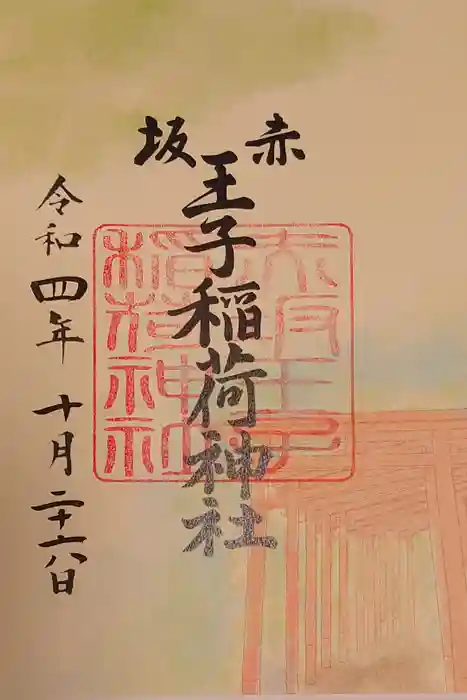 赤坂
王子稲荷神社
令和四年十月二十六日
赤坂王子
稲荷神社